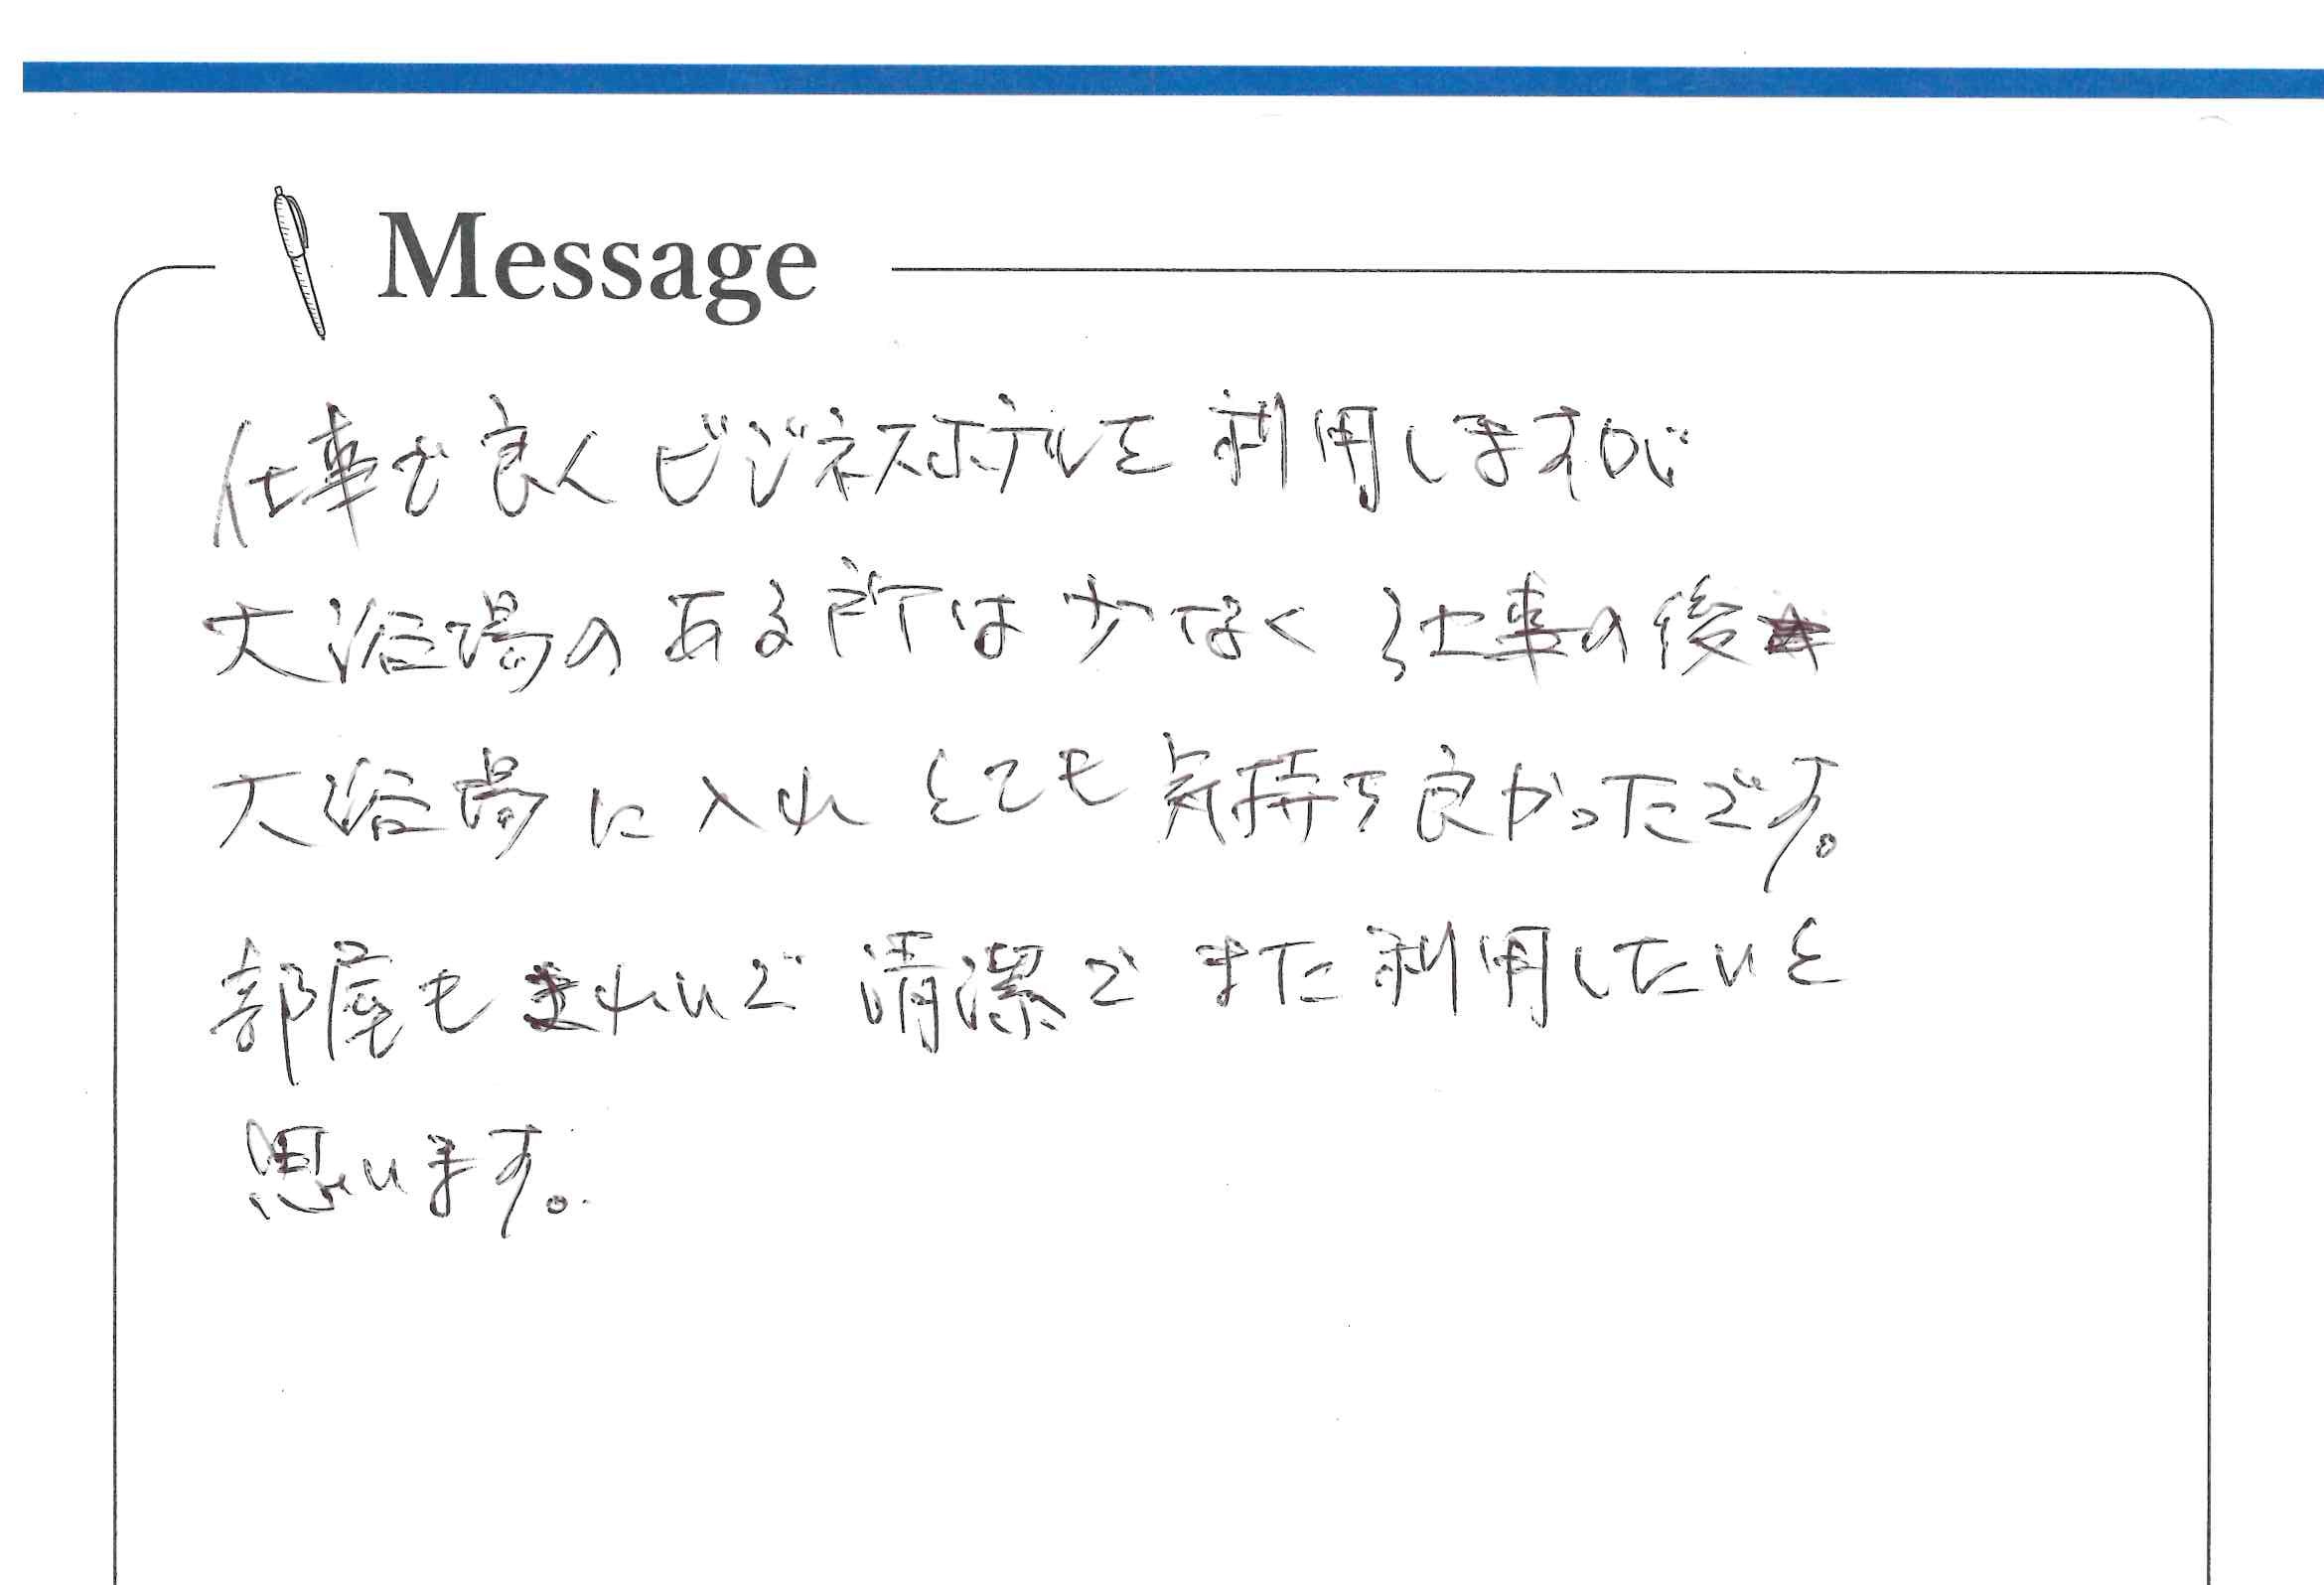 Message
仕事で良くビジネスホテルを利用しますが
大浴場のある所は少なく仕事の後
大浴場に入れとても気持ち良かったです。
部屋もきれいで清潔でまた利用したいと
思います。